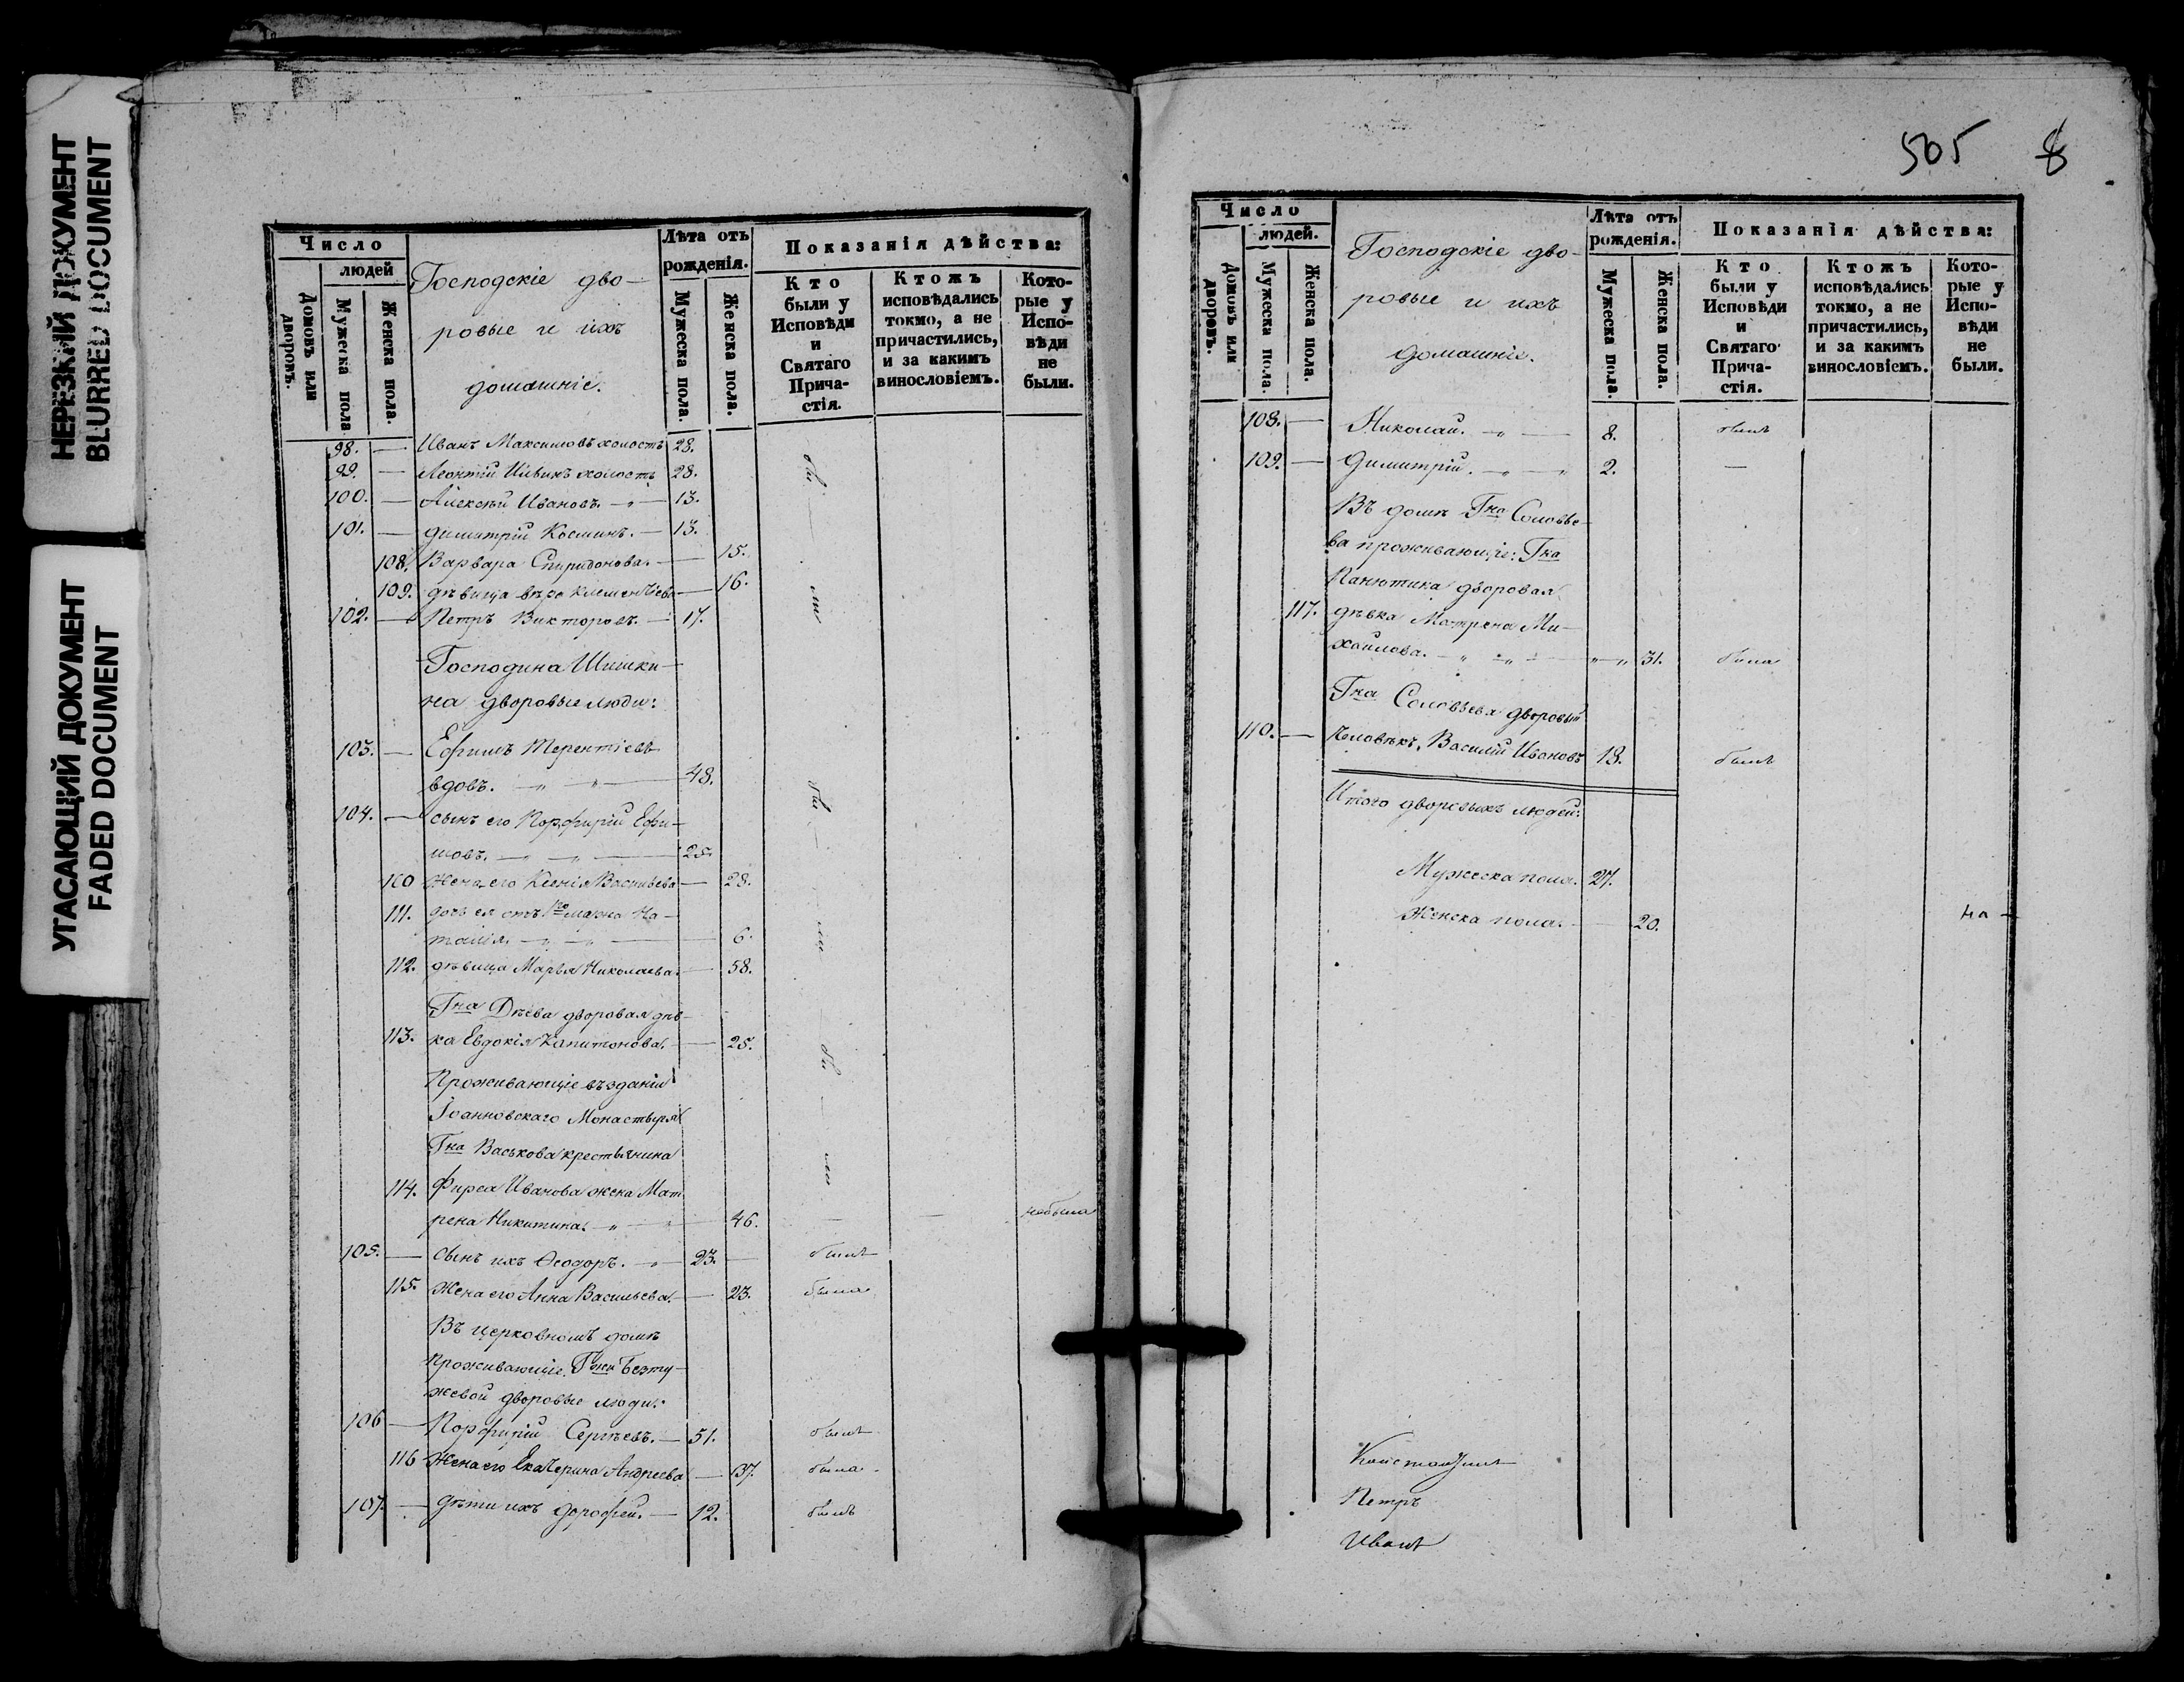 НЕРЕЗКИЙ ДОКУМЕНТ
BLURRED DOCUMENT
УГАСАЮЩИЙ ДОКУМЕНТ
FADED DOCUMENT
Число
людей
Домовъ или дворовъ.
Мужеска пола
Женска пола.
Господскіе дво-
ровые и ихъ
домашніе.
Лѣта отъ
рожденія.
Мужеска пола.
Женска пола.
Показанія дѣйства:
Кто
были у
Исповѣди
и
Святаго
Прича-
стія.
Ктожъ
исповѣдались
токмо, а не
причастились,
и за какимъ
винословіемъ.
Кото-
рые у
Испо-
вѣди
не
были.
98. — Иванъ Максимовъ холостъ 28.
99. — Леонтій Ильинъ холостъ 28. бы
100. — Алексѣй Ивановъ. — „ — 13.
101. — Димитрій Косминъ. — 13.
108. Варвара Спиридонова. — 15.
109. дѣвица Вѣра Клементьева — 16. ли
102. — Петръ Викторовъ. — 17.
Господина Шишки-
на дворовые люди:
103. — Ефимъ Терентіевъ
вдовъ. — „ — „ — 48. бы
104. — сынъ его Порфирій Ефи-
мовъ. — „ — „ — 25.
110 жена его Ксенія Васильева — 28.
111. дочь ея отъ 1го мужа На-
талія. — „ — „ — 6. ли
112. дѣвица Марья Николаева. — 58.
Гна Дѣева дворовая дѣв-
113. ка Евдокія Капитонова. — 25. бы
Проживающіе въ зданіи
Іоанновскаго Монастыря
Гна Васькова крестьянина ли
114. Фирса Иванова жена Мат
рена Никитина. — „ — 46. — — не была
105. — сынъ ихъ Ѳеодоръ. — „ — 23. — былъ
115. Жена его Анна Васильева. — 23. была
Въ церковномъ домѣ
проживающіе. Гжи Безту-
жевой дворовые люди:
106 — Порфирій Сергѣевъ. — 51. былъ
116 Жена его Екатерина Андреева — 37. была
107. — дѣти ихъ Дорофей. — 12. былъ
505 8
Число
людей.
Домовъ или дворовъ.
Мужеска пола.
Женска пола.
Господскіе дво-
ровые и ихъ
домашніе.
Лѣта отъ
рожденія.
Мужеска пола.
Женска пола.
Показанія дѣйства:
Кто
были у
Исповѣди
и
Святаго
Прича-
стія.
Ктожъ
исповѣдались
токмо, а не
причастились,
и за какимъ
винословіемъ.
Кото-
рые у
Испо-
вѣди
не
были.
108. — Николай. — „ — 8. былъ
109. — Димитрій. — „ — „ 2. —
Въ домѣ Гна Соловье-
ва проживающіе: Гна
Панютина дворовая
117. дѣвка Матрена Ми-
хайлова. — „ — „ — „ — „ 31. была
Гна Соловьева дворовый
110. — человѣкъ, Василій Ивановъ 18. былъ
Итого дворовыхъ людей:
Мужеска пола. 27.
Женска пола. — 20.
Константинъ
Петръ
Иванъ